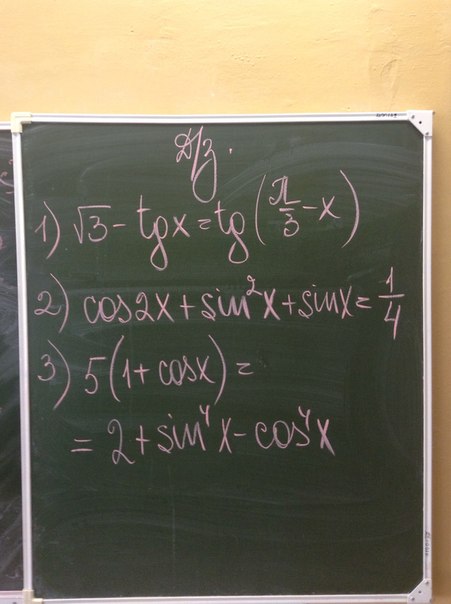 Д/з.
1) √3 - tgx = tg(π/3 - x)
2) cos2x + sin²x + sinx = 1/4
3) 5(1 + cosx) =
= 2 + sin⁴x - cos⁴x